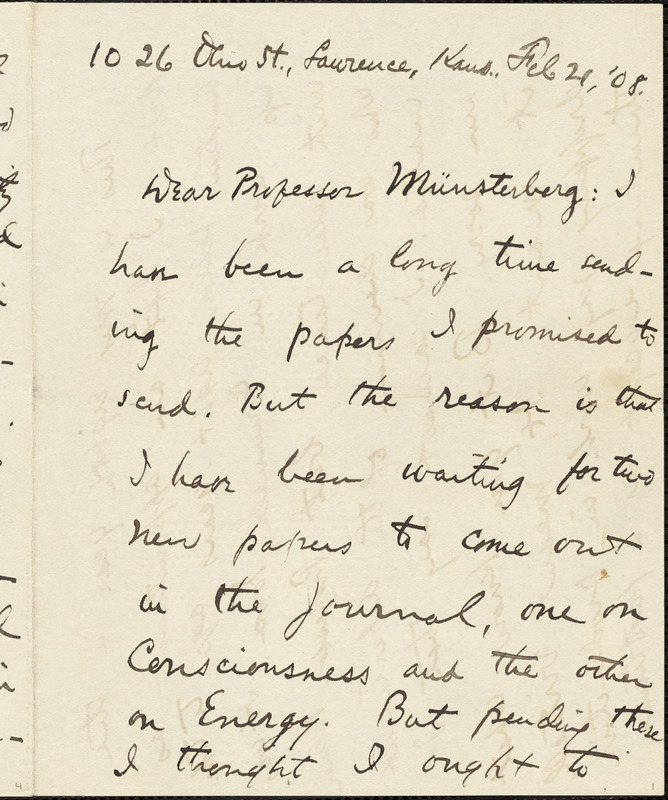 1026 Ohio St., Lawrence, Kans., Feb 21, '08.
Dear Professor Münsterberg: I
have been a long time send-
ing the papers I promised to
send. But the reason is that
I have been waiting for two
new papers to come out
in the Journal, one on
Consciousness and the other
on Energy. But pending these
I thought I ought to